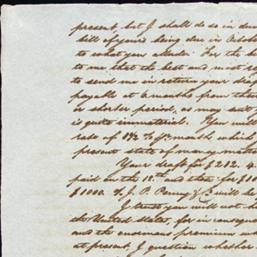 present, but I shall do so in due
bill of yours being due in Octobe
to what you allude. For the b
to me that the best and
to send me in return your
payable at 6 months from the
or shorter period, as may suit y
is quite immaterial. You will
rate of 1½ % pr month, which
present state of money matte
Your draft for $212. 4
paid on the 18th and that for $10
$1000. to J. P. Penny & will be
I trust you will not
the United States, for in conseq
and the enormous premium
at present I question whether